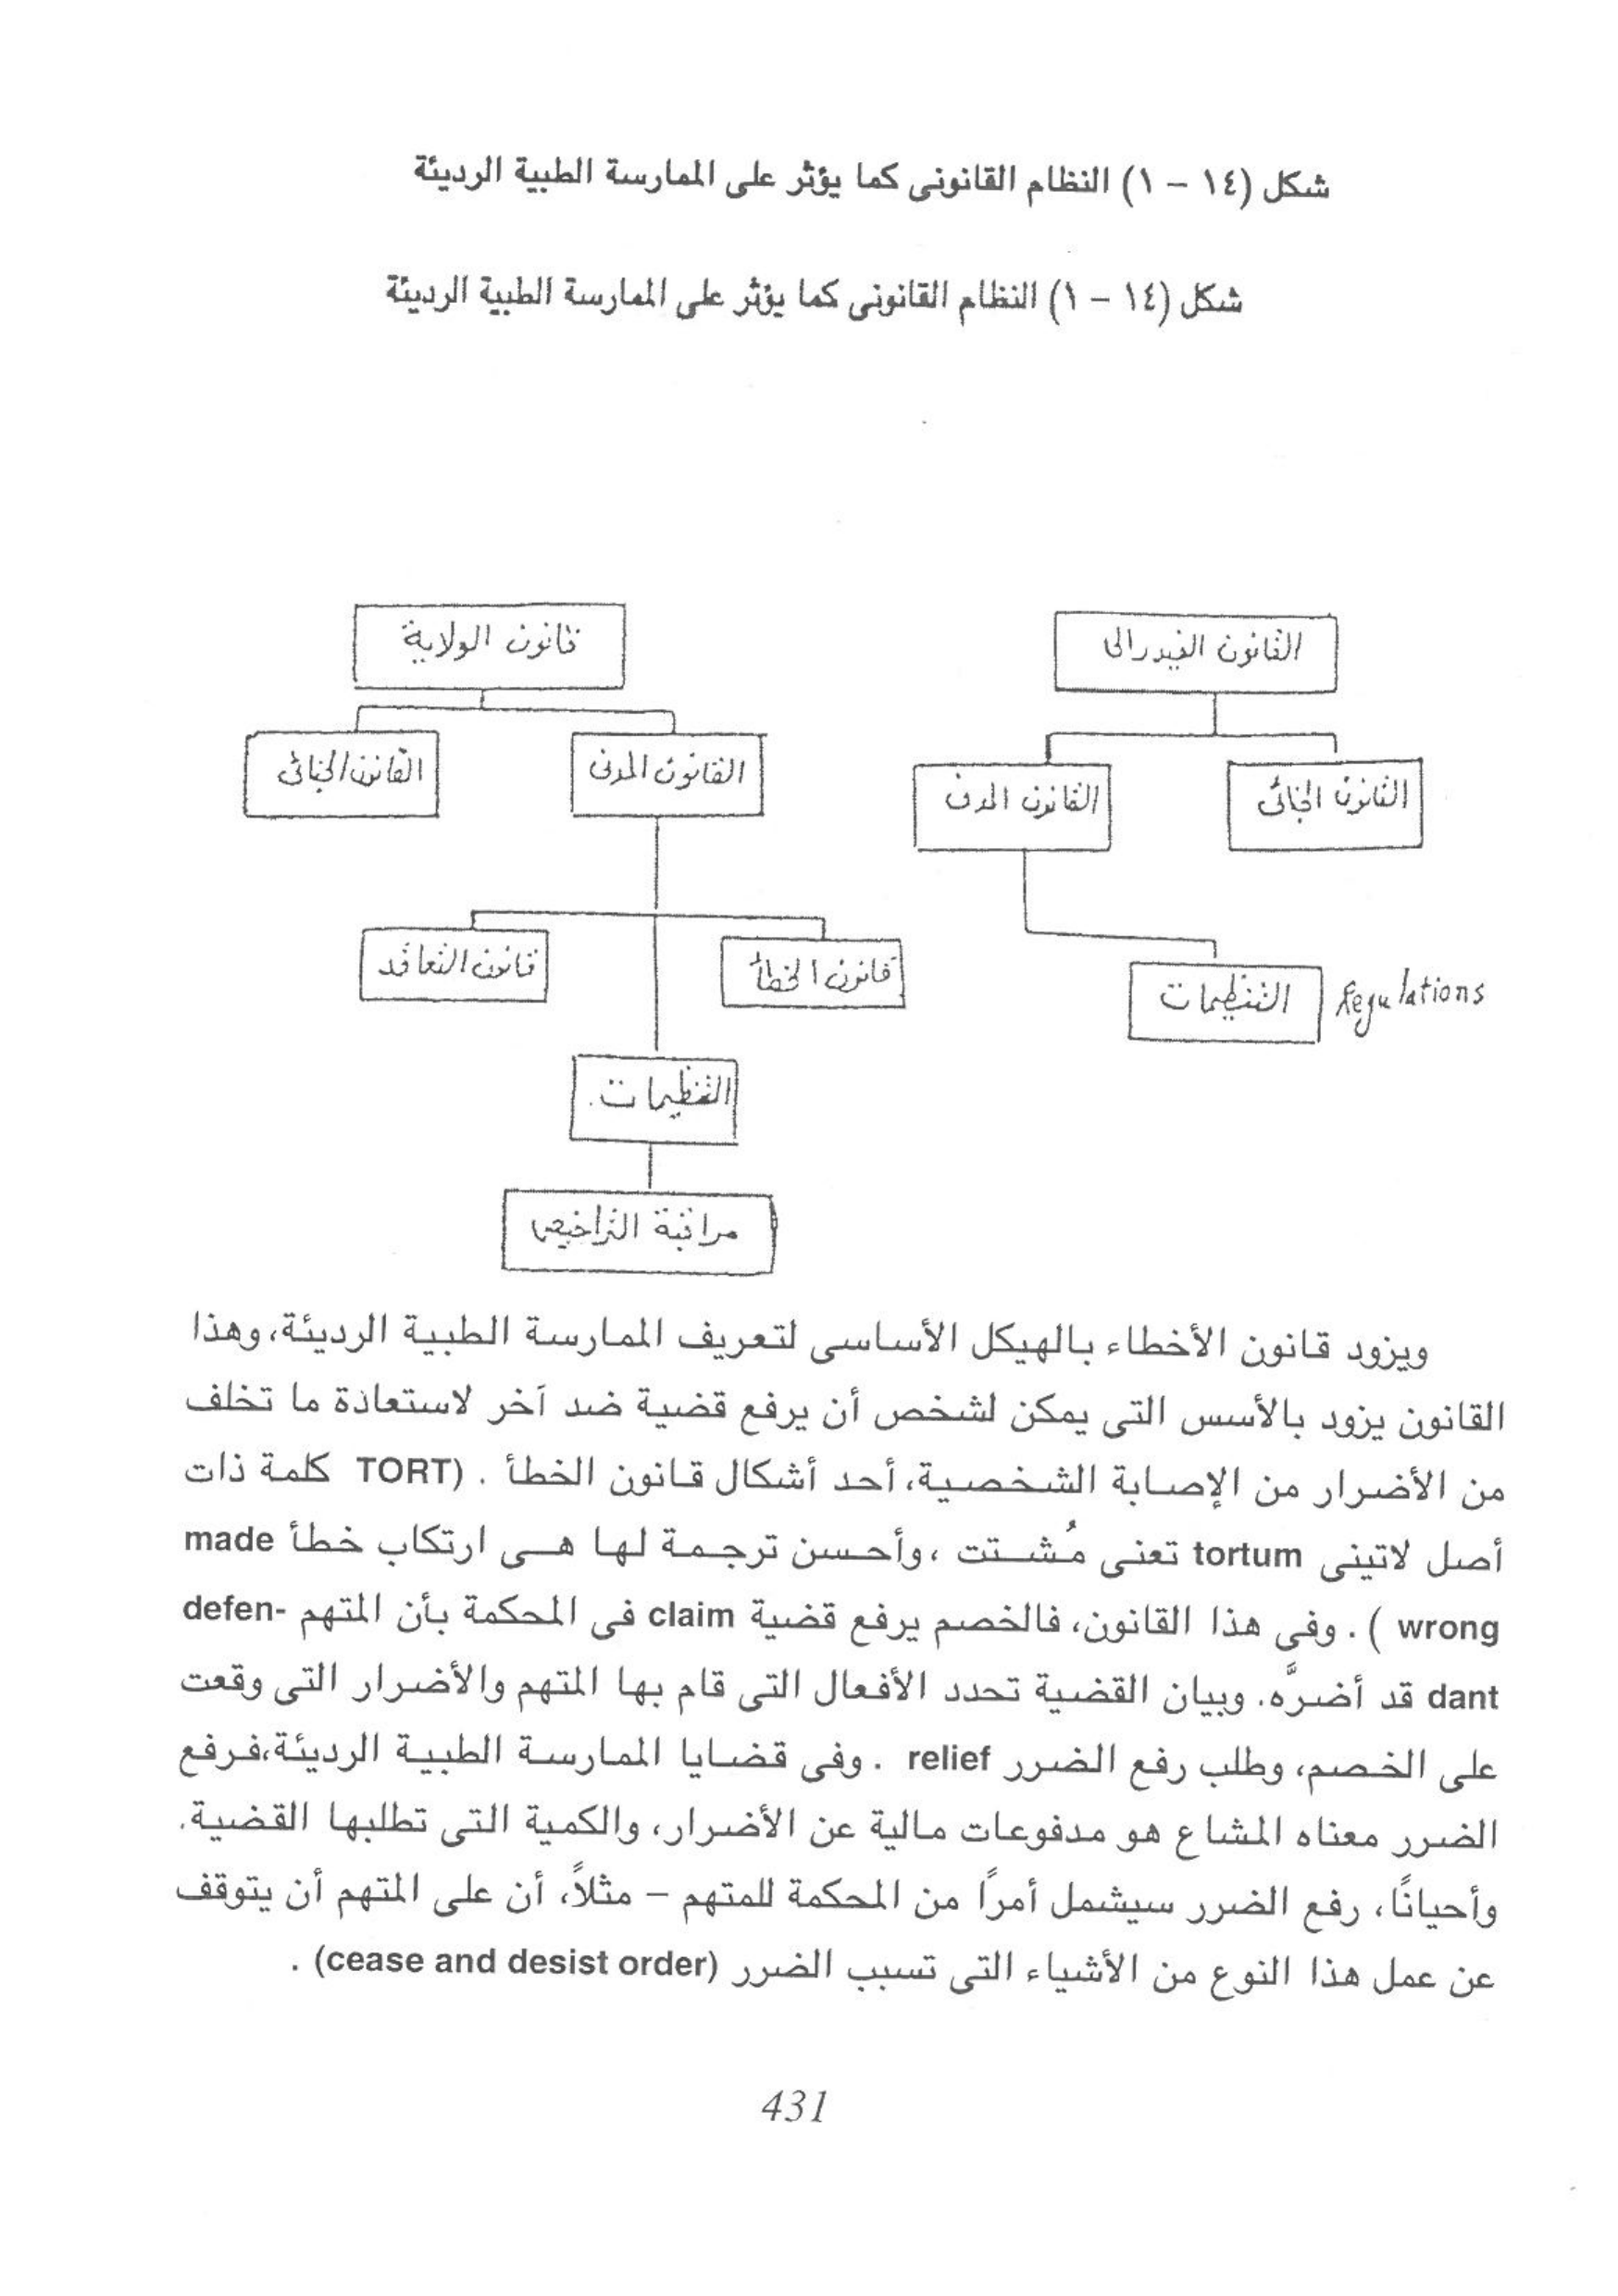 شكل (١٤ - ١) النظام القانونى كما يؤثر على الممارسة الطبية الرديئة
شكل (١٤ - ١) النظام القانونى كما يؤثر على الممارسة الطبية الرديئة
القانون الفيدرالى
قانون الولاية
القانون الجنائى
القانون المدنى
القانون المدنى
القانون الجنائى
قانون الخطأ
قانون التعاقد
التنظيمات
Regulations
التنظيمات.
مراقبة التراخيص
ويزود قانون الأخطاء بالهيكل الأساسى لتعريف الممارسة الطبية الرديئة، وهذا
القانون يزود بالأسس التى يمكن لشخص أن يرفع قضية ضد آخر لاستعادة ما تخلف
من الأضرار من الإصابة الشخصية، أحد أشكال قانون الخطأ . (TORT كلمة ذات
أصل لاتينى tortum تعنى مُشتت ، وأحسن ترجمة لها هى ارتكاب خطأ made
wrong ) . وفى هذا القانون، فالخصم يرفع قضية claim فى المحكمة بأن المتهم defen-
dant قد أضرَّه. وبيان القضية تحدد الأفعال التى قام بها المتهم والأضرار التى وقعت
على الخصم، وطلب رفع الضرر relief . وفى قضايا الممارسة الطبية الرديئة،فرفع
الضرر معناه المشاع هو مدفوعات مالية عن الأضرار، والكمية التى تطلبها القضية.
وأحيانًا، رفع الضرر سيشمل أمرًا من المحكمة للمتهم – مثلاً، أن على المتهم أن يتوقف
عن عمل هذا النوع من الأشياء التى تسبب الضرر (cease and desist order) .
431